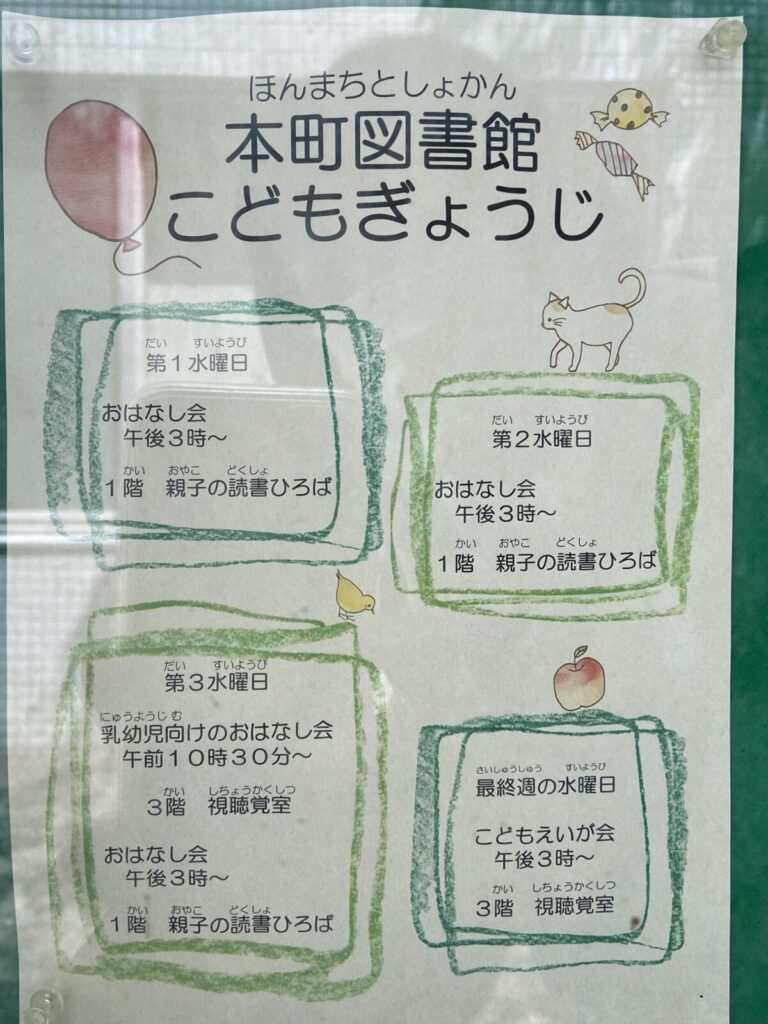 ほんまちとしょかん
本町図書館
こどもぎょうじ
だい すいようび
第１水曜日
おはなし会
午後３時～
かい おやこ どくしょ
１階 親子の読書ひろば
だい すいようび
第２水曜日
おはなし会
午後３時～
かい おやこ どくしょ
１階 親子の読書ひろば
だい すいようび
第３水曜日
にゅうようじ む
乳幼児向けのおはなし会
午前１０時３０分～
かい しちょうかくしつ
３階 視聴覚室
おはなし会
午後３時～
かい おやこ どくしょ
１階 親子の読書ひろば
さいしゅうしゅう すいようび
最終週の水曜日
こどもえいが会
午後３時～
かい しちょうかくしつ
３階 視聴覚室